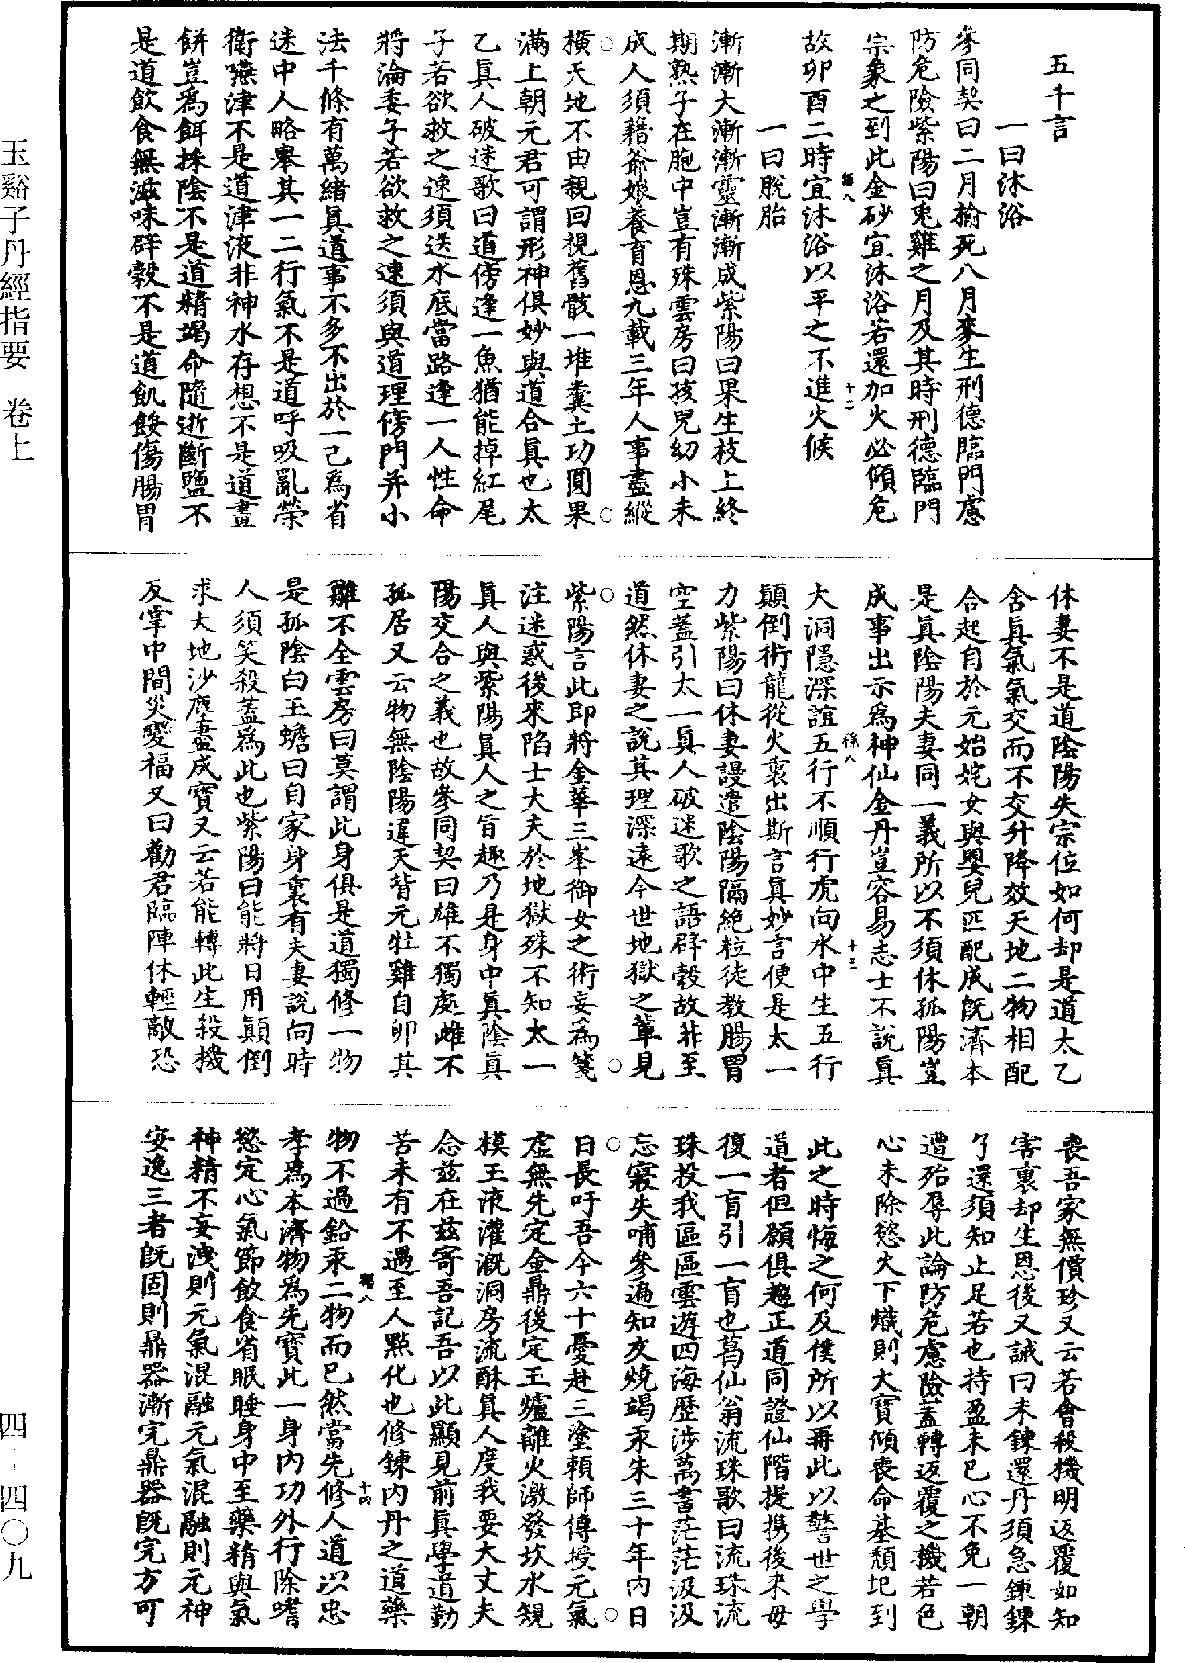 五千言
一曰沐浴
參同契曰二月榆死八月麥生刑德臨門慮
防危險紫陽曰兔雞之月及其時刑德臨門
宗象之到此金砂宜沐浴若還加火必傾危
故卯酉二時宜沐浴以平之不進火候
一曰脫胎
漸漸大漸漸靈漸漸成紫陽曰果生枝上終
期熟子在胞中豈有殊雲房曰孩兒幼小未
成人須藉爺娘養育恩九載三年人事盡縱
橫天地不由親回視舊骸一堆糞土功圓果
滿上朝元君可謂形神俱妙與道合真也太
乙真人破迷歌曰道傍逢一魚猶能掉紅尾
子若欲救之速須送水底當路逢一人性命
將淪委子若欲救之速須與道理傍門并小
法千條有萬緒真道事不多不出於一己為省
迷中人略舉其一二行氣不是道呼吸亂榮
衛嚥津不是道津液非神水存想不是道畫
餅豈為餌採陰不是道精竭命隨逝斷鹽不
是道飲食無滋味辟穀不是道飢餒傷腸胃
休妻不是道陰陽失宗位如何却是道太乙
含真氣氣交而不交升降效天地二物相配
合起自於元始姹女與嬰兒匹配成既濟本
是真陰陽夫妻同一義所以不須休孤陽豈
成事出示為神仙金丹豈容易志士不說真
大洞隱深誼五行不順行虎向水中生五行
顛倒術龍從火裏出斯言真妙言便是太一
力紫陽曰休妻謾遣陰陽隔絕粒徒教腸胃
空蓋引太一真人破迷歌之語辟穀故非至
道然休妻之說其理深遠今世地獄之輩見
紫陽言此即將金華三峯御女之術妄為箋
注迷惑後來陷士大夫於地獄殊不知太一
真人與紫陽真人之旨趣乃是身中真陰真
陽交合之義也故參同契曰雄不獨處雌不
孤居又云物無陰陽違天背元牡雞自卵其
雛不全雲房曰莫謂此身俱是道獨修一物
是孤陰白玉蟾曰自家身裏有夫妻說向時
人須笑殺蓋為此也紫陽曰能將日用顛倒
求大地沙塵盡成寶又云若能轉此生殺機
反掌中間災變福又曰勸君臨陣休輕敵恐
喪吾家無價珍又云若會殺機明返覆如知
害裏却生恩後又誡曰未鍊還丹須急鍊鍊
了還須知止足若也持盈未已心不免一朝
遭殆辱此論防危慮險蓋轉返覆之機若色
心未除慾火下熾則大寶傾喪命基頹圮到
此之時悔之何及僕所以再此以警世之學
道者但願俱趨正道同證仙階提携後來毋
復一盲引一盲也葛仙翁流珠歌曰流珠流
珠投我區區雲遊四海歷涉萬書茫茫汲汲
忘寢失哺參遍知友燒竭汞朱三十年內日
日長吁吾今六十憂赴三塗賴師傳授元氣
虛無先定金鼎後定玉爐離火激發坎水規
模玉液灌溉洞房流酥真人度我要大丈夫
念茲在茲寄吾記吾以此顯見前真學道勤
苦未有不遇至人點化也修鍊內丹之道藥
物不過鉛汞二物而已然當先修人道以忠
孝為本濟物為先寶此一身內功外行除嗜
慾定心氣節飲食省眠睡身中至藥精與氣
神精不妄洩則元氣混融元氣混融則元神
安逸三者既固則鼎器漸完鼎器既完方可
玉谿子丹經指要 卷上
四-四〇九